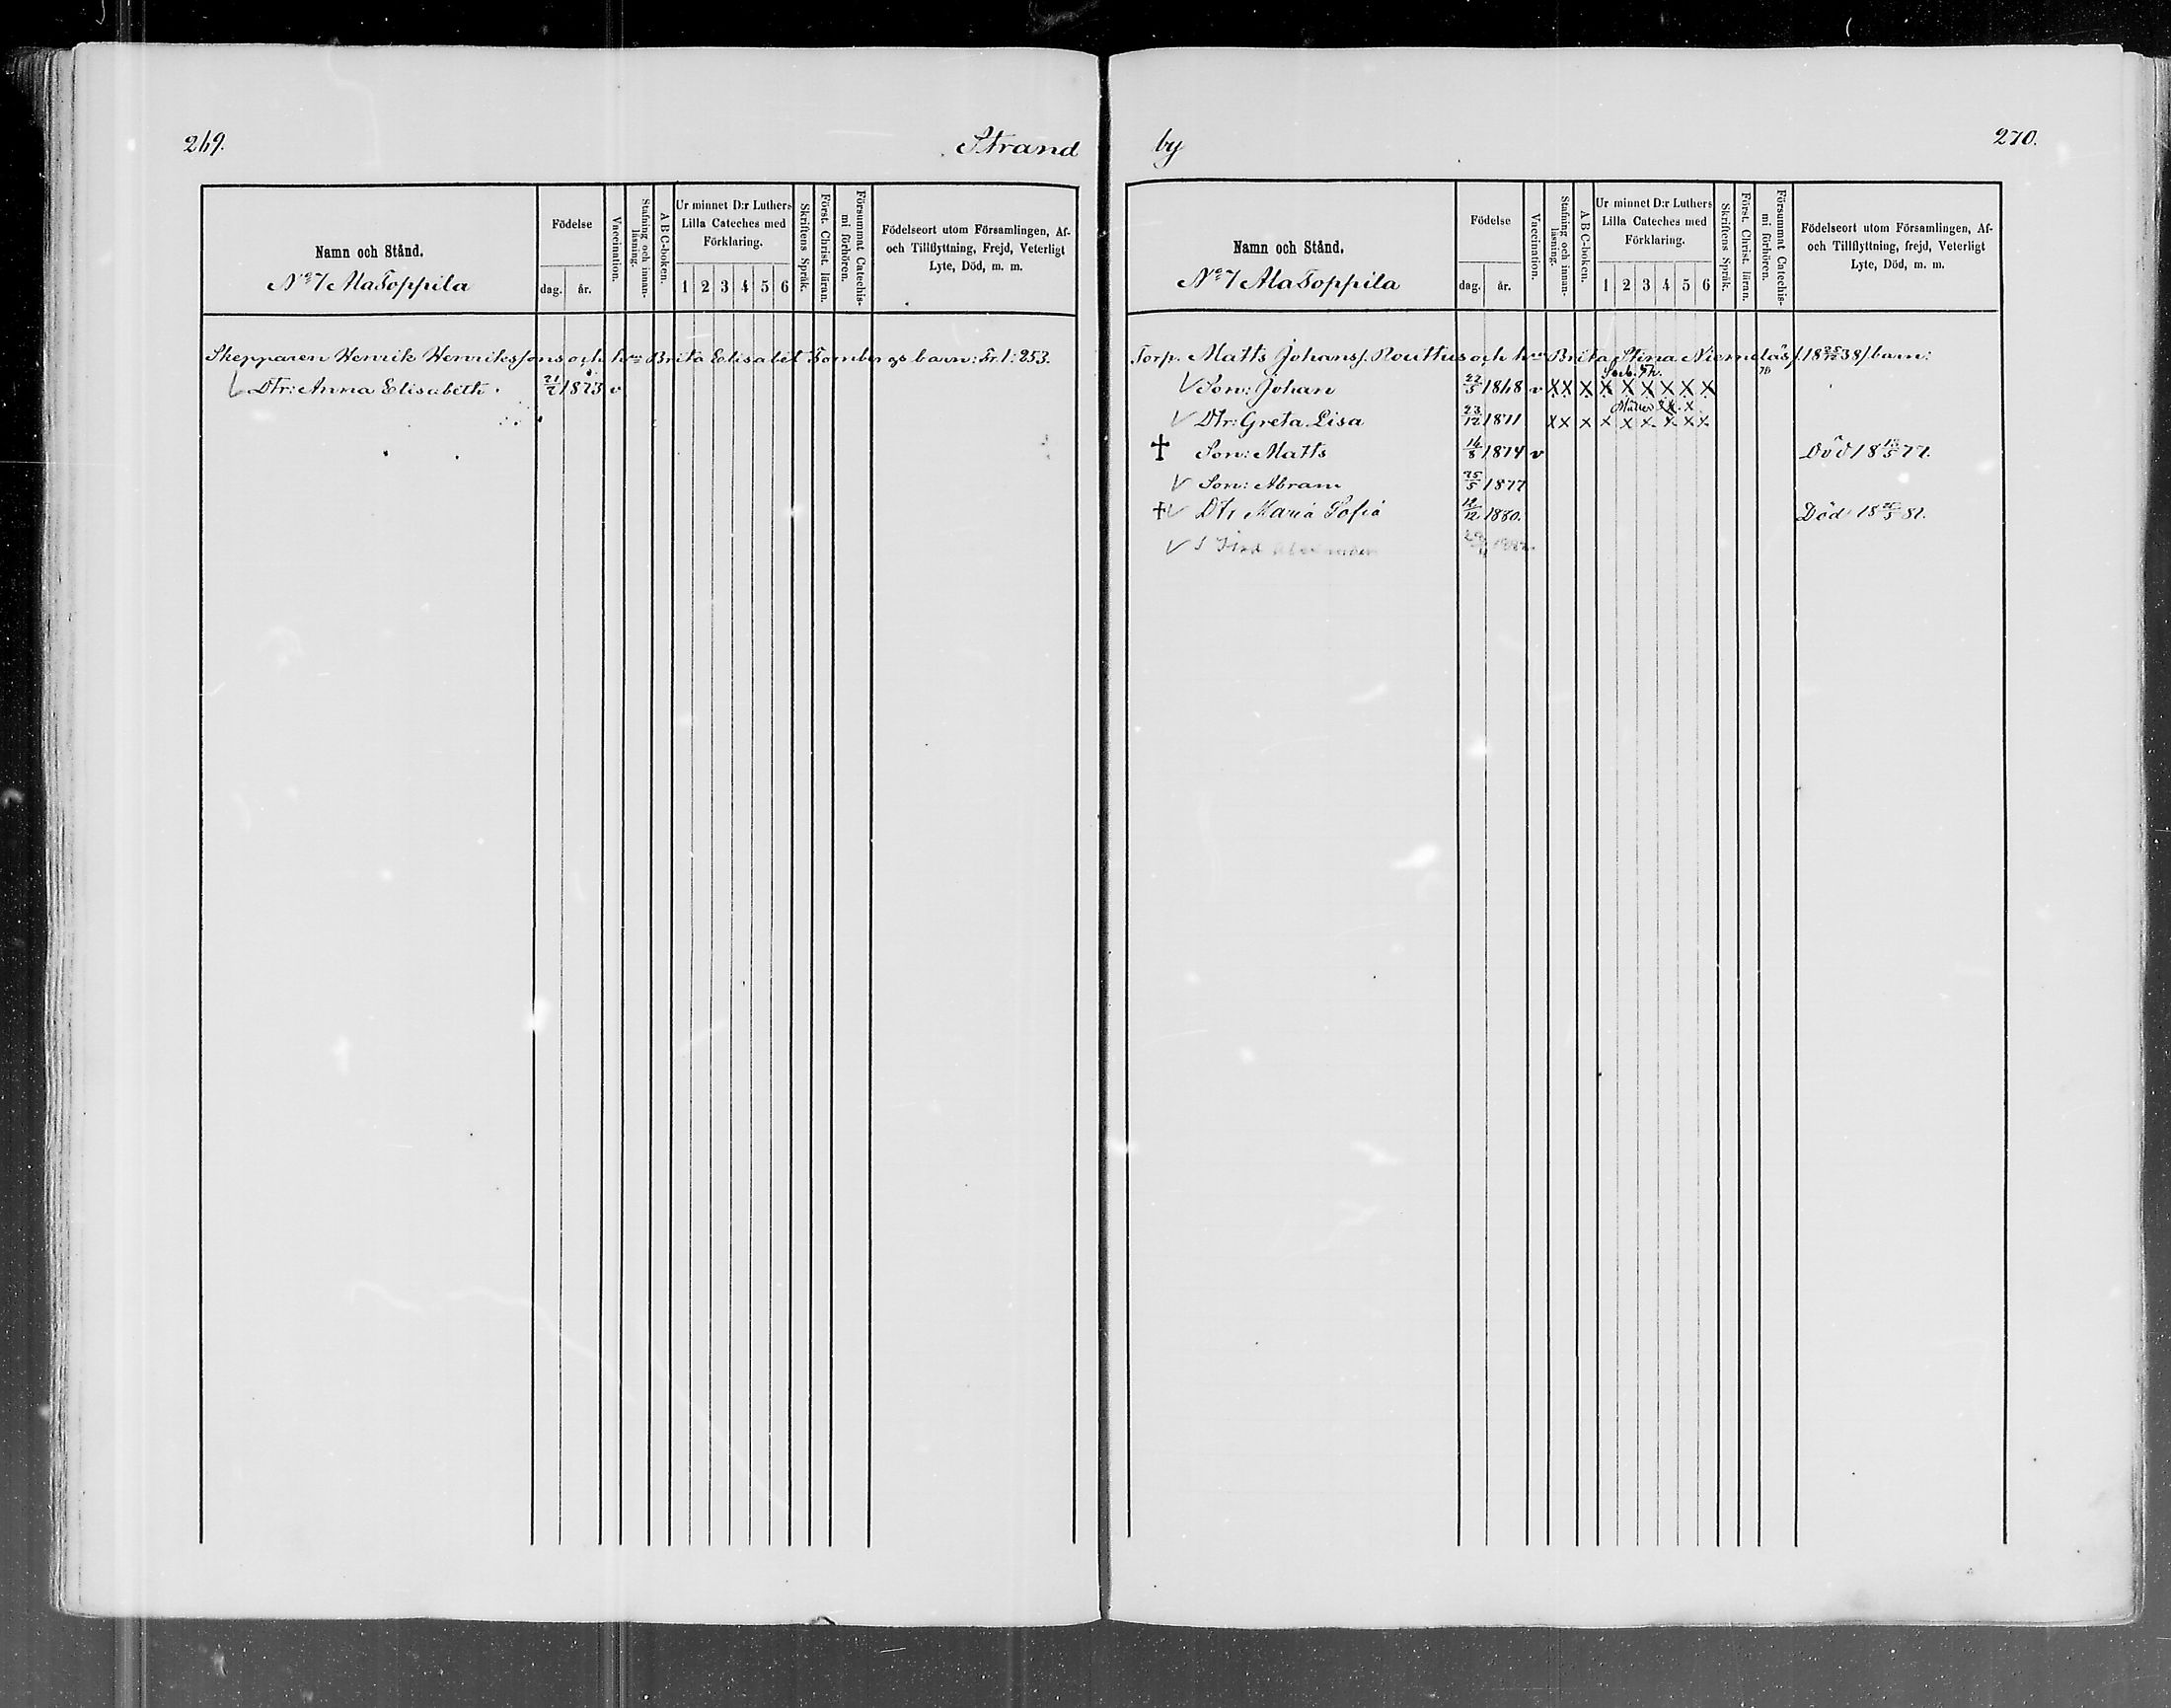 269.
Strand
Namn och Stånd.
No 7 AlaToppila
Födelse
dag. år.
Vaccination.
Stafning och innanläsning.
A B C-boken.
Ur minnet D:r Luthers
Lilla Cateches med
Förklaring.
1 2 3 4 5 6
Skriftens Språk.
Först. Christ. läran.
Försummat Catechismi förhören.
Födelseort utom Församlingen, Af-
och Tillflyttning, Frejd, Veterligt
Lyte, Död, m. m.
Skepparen Henrik Henrikssons och h:us Brita Elisabet Fornbergs barn: Fr. l: 253.
Dtr: Anna Elisabeth 21/2 1873 v
by
270.
Namn och Stånd.
No 7 AlaToppila
Födelse
dag. år.
Vaccination.
Stafning och innanläsning.
A B C-boken.
Ur minnet D:r Luthers
Lilla Cateches med
Förklaring.
1 2 3 4 5 6
Skriftens Språk.
Först. Christ. läran.
Försummat Catechismi förhören.
Födelseort utom Församlingen, Af-
och Tillflyttning, frejd, Veterligt
Lyte, Död, m. m.
Torp. Matts Johanss. Routtus och h:us Brita Stina Niemeläs barn:
√ Son: Johan 22/5 1868 v X X X X X X X X X
√ Dtr: Greta Lisa 23/12 1871 x x x x x x x x x
† Son: Matts 14/8 1874 v Död 18 13/5 77.
√ Son: Abram 25/5 1877
† √ Dtr Maria Sofia 12/12 1880. Död 18 81.
√ S